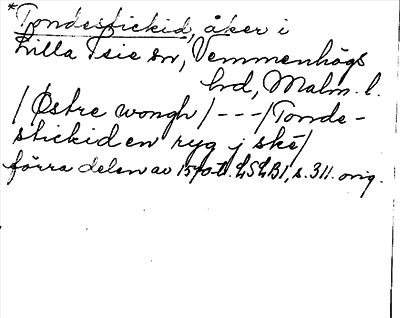 *Tondestickid, åker i
Lilla Isie sn, Vemmenhögs
hd, Malm. l.
/Østre wongh/---/Tonde-
stickid en ryg j ske/
förra delen av 1570-t. LSLB1, s. 311. orig.